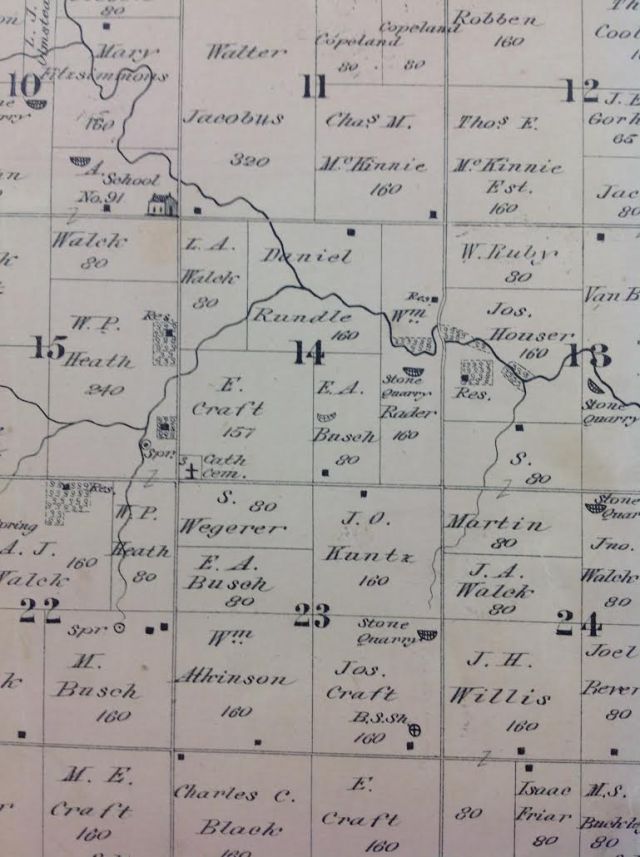 80
L. J.
Olmstead
Mary
Fitzsimmons
160
10
A. School
No. 91
Walter
Jacobus
320
Copeland
80
Copeland
80
11
Chas. M.
McKinnie
160
Robben
160
12
Thos E.
McKinnie
Est.
160
J. E.
65
80
Walck
80
W. P.
Heath
240
15
Res.
Spr.
L. A.
Walck
80
Daniel
Rundle
160
14
E.
Craft
157
Cath
Cem.
E. A.
Busch
80
Res.
Wm
Stone
Quarry
Rader
160
W. Ruby
80
Jos.
Houser
160
Res.
13
Van B
Stone
Quarry
S.
80
Martin
80
Res.
A. J.
Walck
160
W. P.
Heath
80
22
Spr
M.
Busch
160
S. 80
Wegerer
E. A.
Busch
80
J. O.
Kuntz
160
23
Wm
Atkinson
160
Stone
Quarry
Jos.
Craft
B.S.Sh.
160
J. A.
Walck
80
24
J. H.
Willis
160
Stone
Quar
Jno.
Walck
80
Joel
Bever
80
M. E.
Craft
160
Charles C.
Black
160
E.
Craft
160
80
Isaac
Friar
80
M. S.
Buckle
80